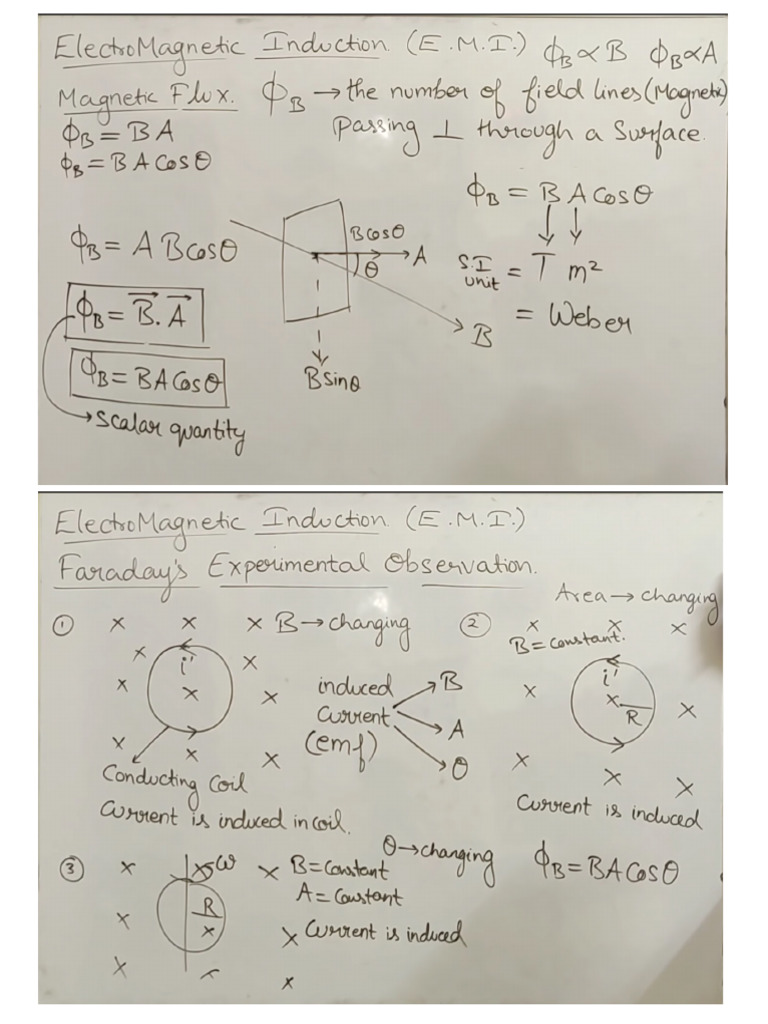 ElectroMagnetic Induction (E.M.I.) ϕB ∝ B ϕB ∝ A
Magnetic Flux. ϕB → the number of field lines (Magnetic)
Passing ⊥ through a Surface.
ϕB = BA
ϕB = BA Cosθ
ϕB = B A Cosθ
ϕB = A B cosθ
B cosθ
A
θ
B
B sinθ
S.I unit = T m²
= Weber
ϕB = B⃗. A⃗
ϕB = BA Cosθ
→ Scalar quantity
ElectroMagnetic Induction (E.M.I.)
Faraday's Experimental Observation.
① × × × B → changing
× i' ×
× × ×
× × ×
Conducting Coil
Current is induced in coil.
induced → B
Current → A
(emf) → θ
② Area → changing
× × ×
B = Constant.
i'
× × R ×
× × ×
Current is induced
③ × × ω × B = Constant θ → changing
A = Constant
R
× × × Current is induced
× ×
ϕB = BA Cosθ